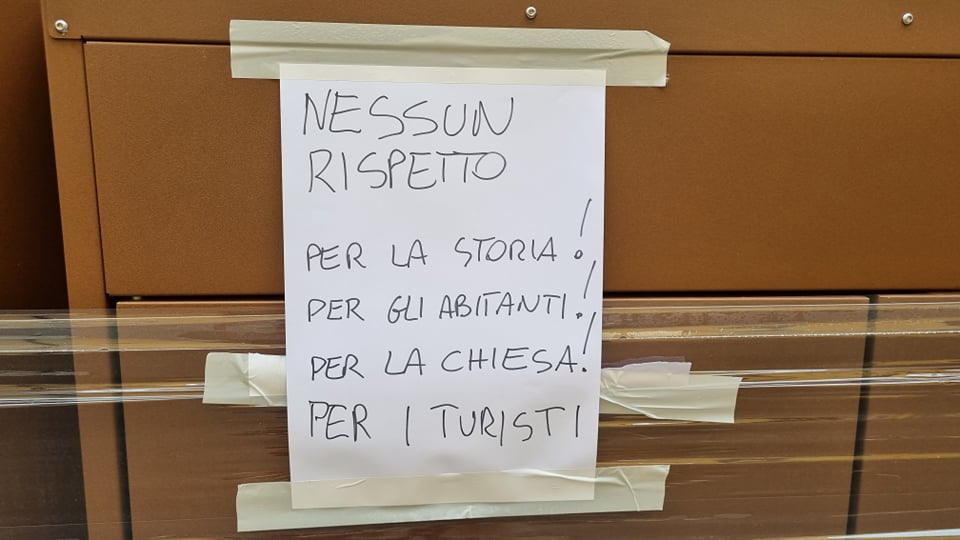 NESSUN
RISPETTO
PER LA STORIA!
PER GLI ABITANTI!
PER LA CHIESA!
PER I TURISTI